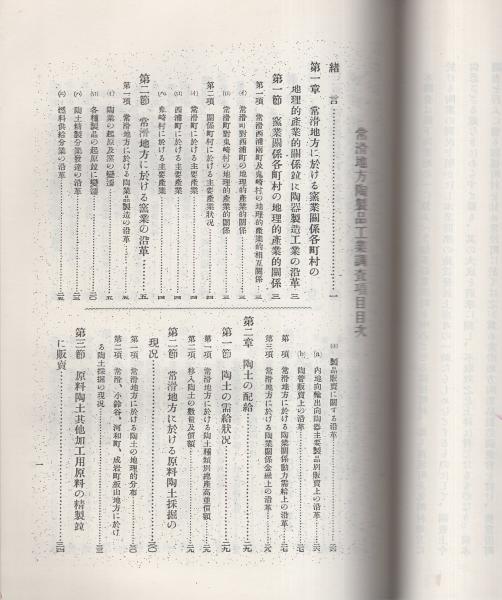 常滑地方陶製品工業調査項目目次
緒言
第一章 常滑地方に於ける窯業關係各町村の
地理的產業的關係竝に陶器製造工業の沿革 三
第一節 窯業關係各町村の地理的產業的關係 三
第一項 常滑西浦兩町及鬼崎村の地理的產業的相互關係
(イ) 常滑町對西浦町の地理的產業的關係
(ロ) 常滑町對鬼崎村の地理的產業的關係
第二項 關係町村に於ける主要產業狀況
(イ) 常滑町に於ける主要產業
(ロ) 西浦町に於ける主要產業
(ハ) 鬼崎村に於ける主要產業
第二節 常滑地方に於ける窯業の沿革 五
第一項 常滑地方に於ける陶業品製造の沿革
(イ) 陶業の起原及窯の變遷
(ロ) 各種製品の起原竝に變遷
(ハ) 陶土精製分業發達の沿革
(ニ) 燃料供給分業の沿革
(ホ) 製品販賣に關する沿革
(a) 內地向輸出向陶器主要製品別販賣上の沿革
(b) 陶管販賣上の沿革
第二項 常滑地方に於ける陶業關係動力需給上の沿革
第三項 常滑地方に於ける陶業關係金融上の沿革
第二章 陶土の配給
第一節 陶土の需給狀況
第一項 常滑地方に於ける陶土種類別總產高竝價額
第二項 移入陶土の數量及價額
第二節 常滑地方に於ける原料陶土採掘の
現況
第一項 常滑地方に於ける陶土の地理的分布
第二項 常滑、小鈴谷、河和町、成岩町飯山地方に於け
る陶土採掘の現況
第三節 原料陶土其他加工用原料の精製竝
に販賣
一